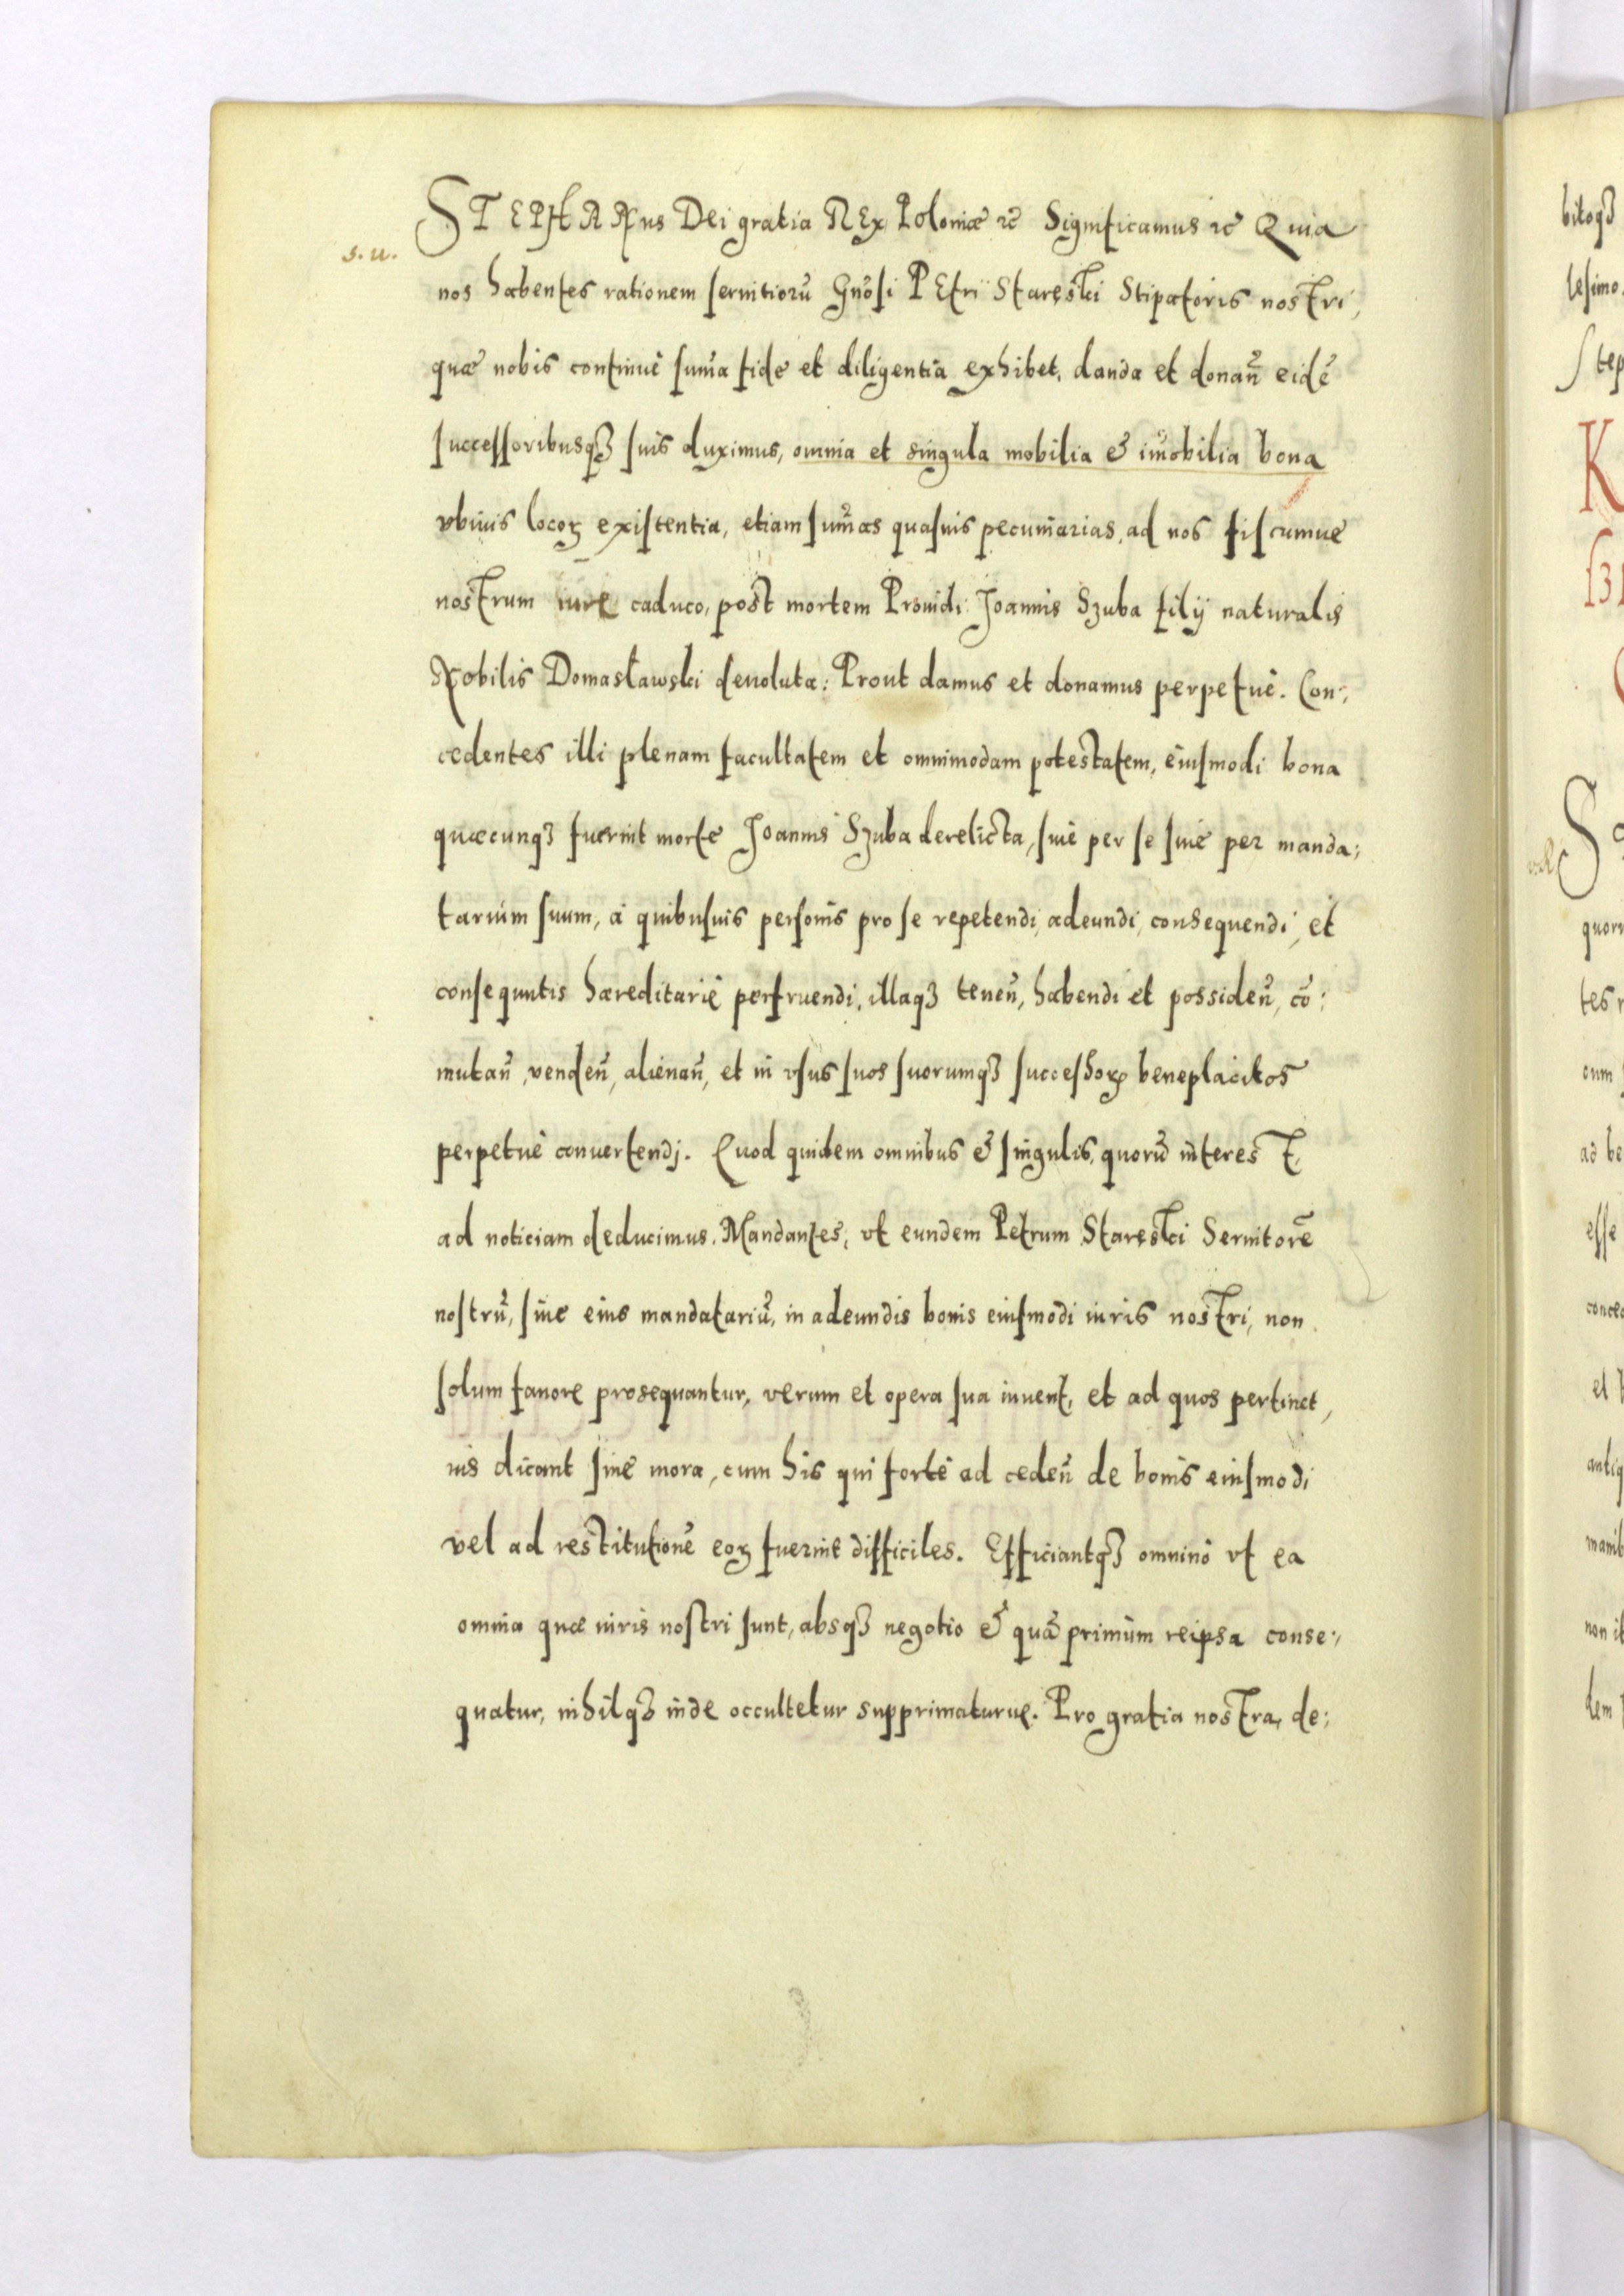 s. u.
STEPHANus Dei gratia REx Poloniæ ꝛc̄ Significamus ꝛc̄ Quia
nos habentes rationem seruitiorū Gn̄osi PEtri Staręski Stipatoris nostri,
quæ nobis continuè sum̄a fide et diligentia exhibet, danda et donan̄ eidē
successoribusqꝫ suis duximus, omnia et singula mobilia & im̄obilia bona
vbiuis locoꝝ existentia, etiam sum̄as quasuis pecuniarias, ad nos fiscumue
nostrum iure caduco, post mortem Prouidi Joannis Szuba filÿ naturalis
Nobilis Domasławski deuoluta: Prout damus et donamus perpetuè. Con:,
cedentes illi plenam facultatem et omnimodam potestatem, eiusmodi bona
quæcunqꝫ fuerint morte Joannis Szuba derelicta, siue per se siue per manda:,
tarium suum, à quibusuis personis pro se repetendi, adeundi, consequendi, et
consequutis hæreditariè perfruendi, illaqꝫ tenen̄, habendi et possiden̄, cō:
mutan̄, venden̄, alienan̄, et in vsus suos suorumqꝫ successoꝝ beneplacitos
perpetuè conuertendj. Quod quidem omnibus & singulis, quorū interest,
ad noticiam deducimus. Mandantes, vt eundem Petrum Staręski Seruitorē
nostrū, siue eius mandatariū, in adeundis bonis eiusmodi iuris nostri, non
solum fauore prosequantur, verum et opera sua iuuent, et ad quos pertinet,
ius dicant sine mora, cum his qui fortè ad ceden̄ de bonis eiusmodi
vel ad restitutionē eoꝝ fuerint difficiles. Efficiantqꝫ omninò vt ea
omnia quæ iuris nostri sunt, absqꝫ negotio & quā primùm reipsa conse:,
quatur, nihilqꝫ inde occultetur supprimaturue. Pro gratia nostra, de:,